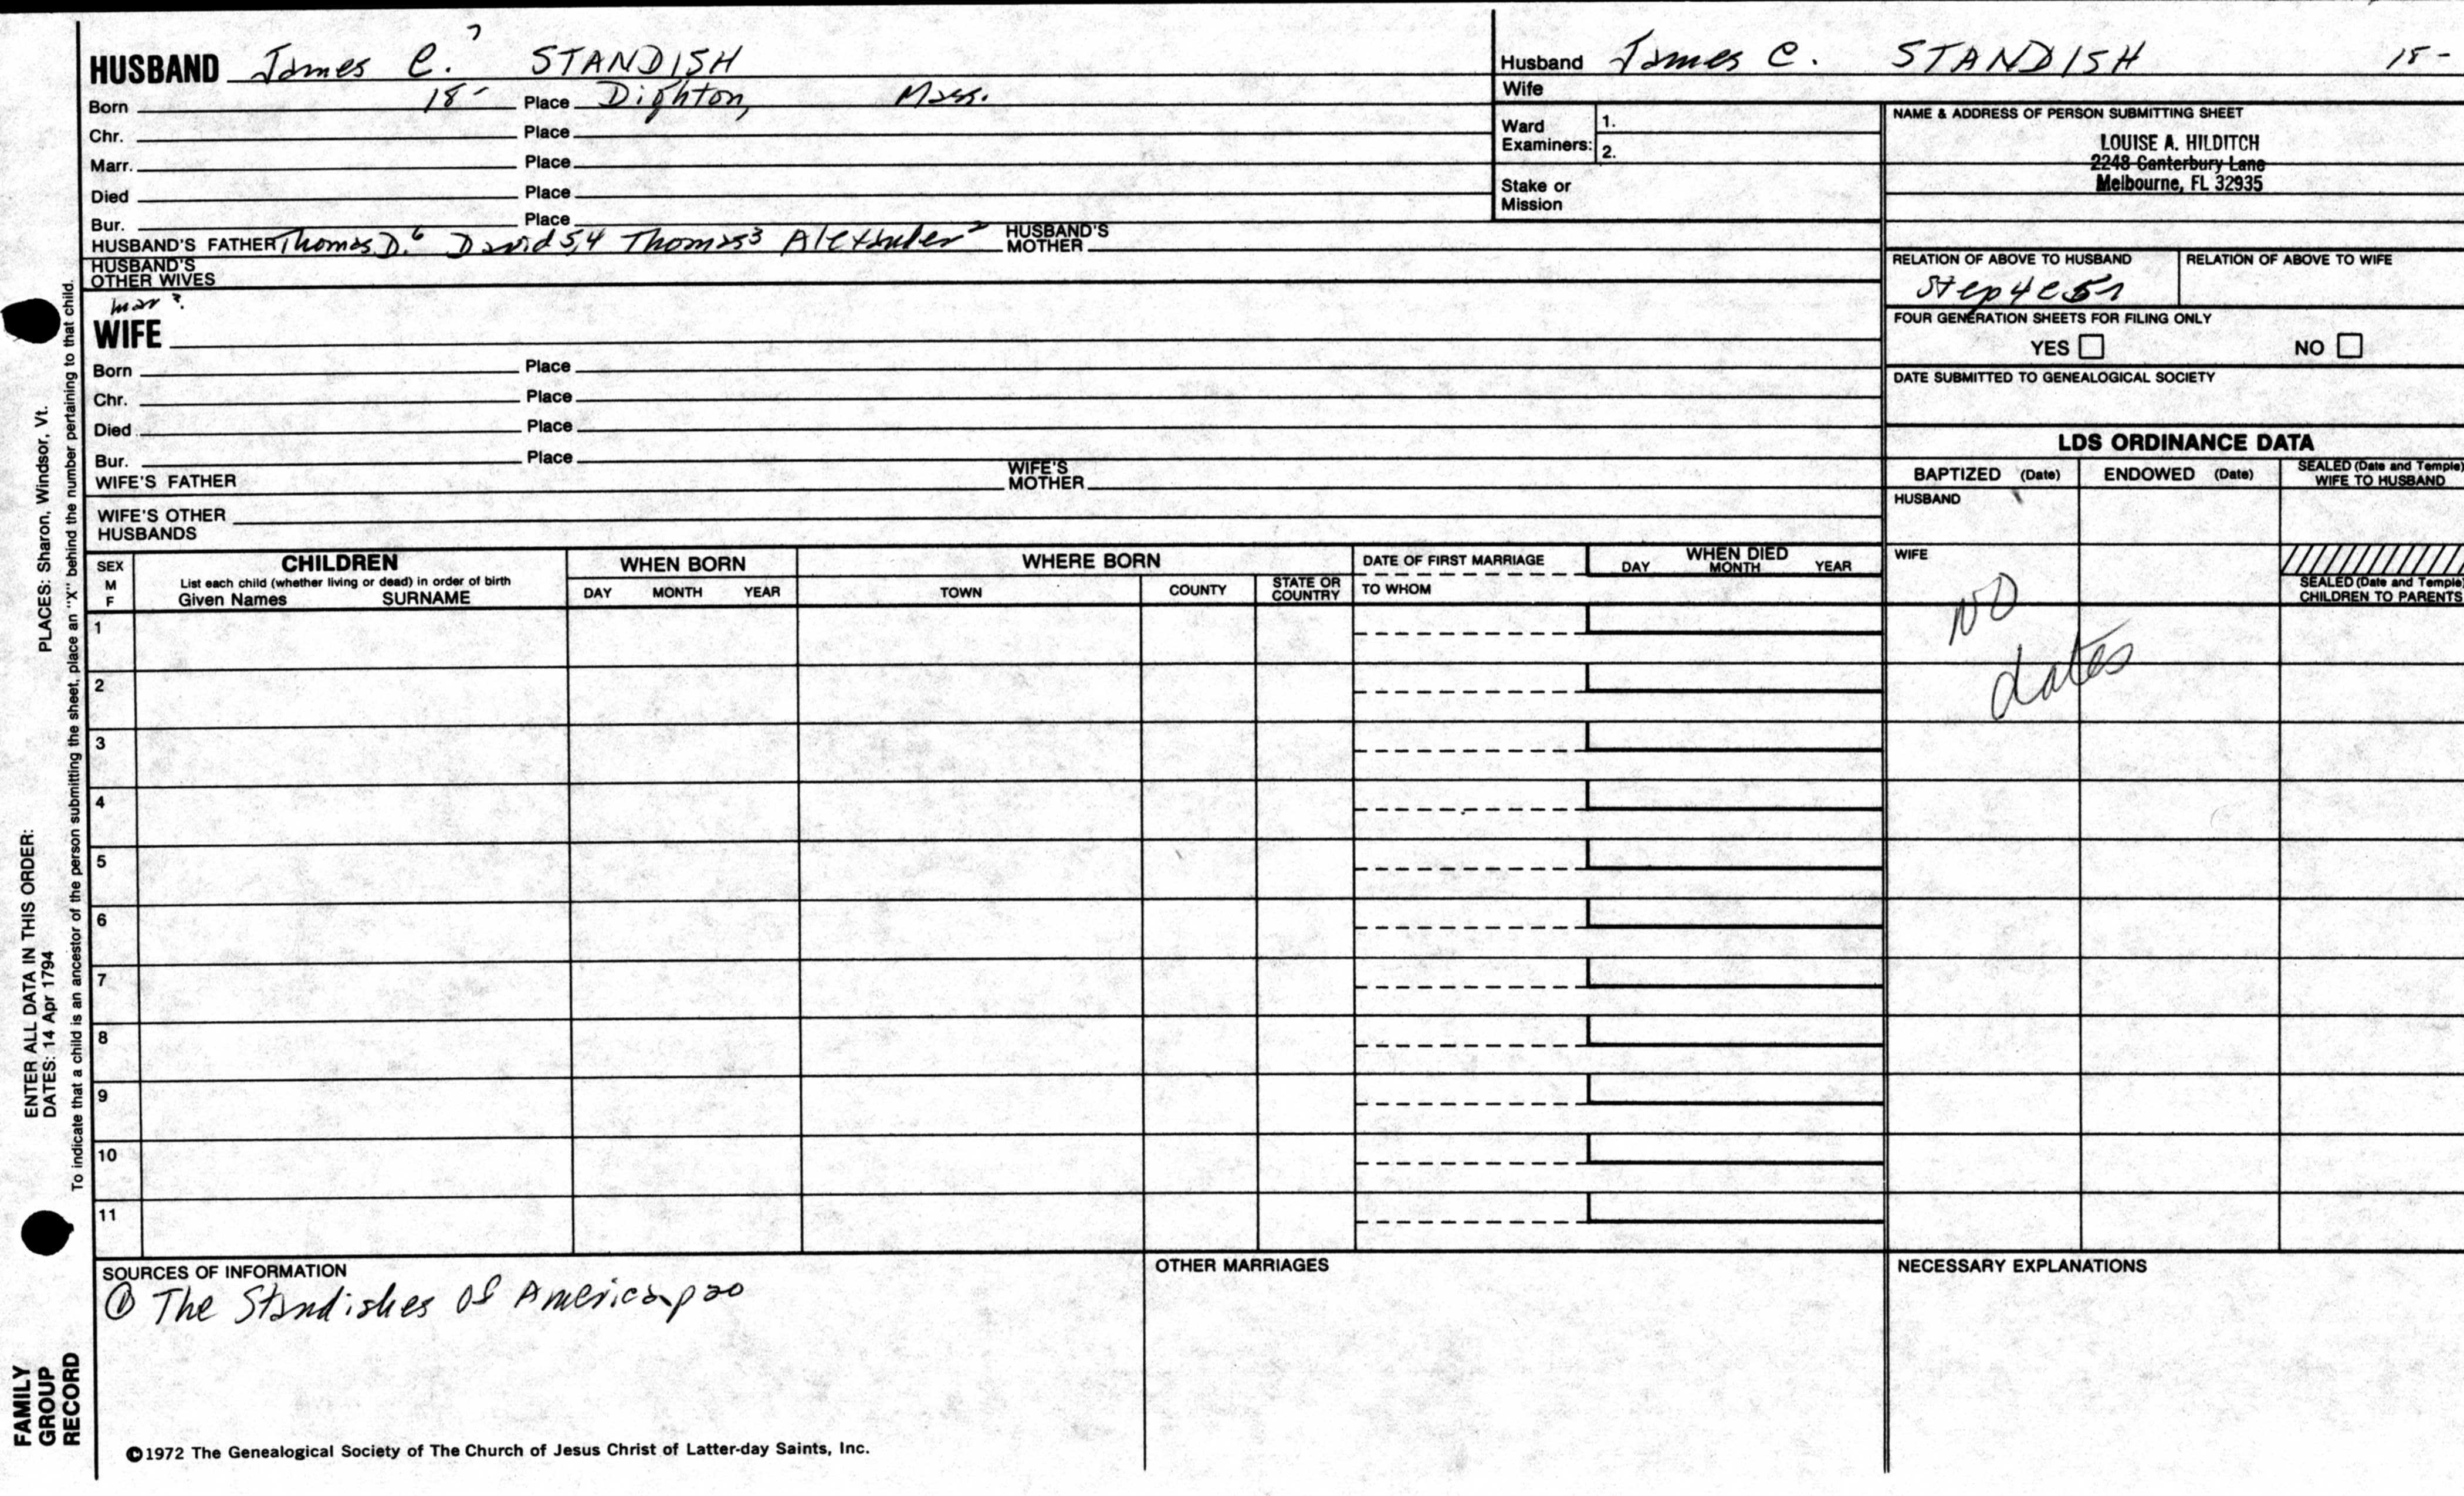 HUSBAND James C.⁷ STANDISH
Born 18- Place Dighton, Mass.
Chr. Place
Marr. Place
Died Place
Bur. Place
HUSBAND'S FATHER Thomas D.⁶ David 5,4 Thomas³ Alexander² HUSBAND'S MOTHER
HUSBAND'S OTHER WIVES
mar ?
WIFE
Born Place
Chr. Place
Died Place
Bur. Place
WIFE'S FATHER WIFE'S MOTHER
WIFE'S OTHER HUSBANDS
Husband James C. STANDISH 18-
Wife
Ward Examiners: 1.
2.
Stake or Mission
NAME & ADDRESS OF PERSON SUBMITTING SHEET
LOUISE A. HILDITCH
2248 Canterbury Lane
Melbourne, FL 32935
RELATION OF ABOVE TO HUSBAND RELATION OF ABOVE TO WIFE
FOUR GENERATION SHEETS FOR FILING ONLY
YES NO
DATE SUBMITTED TO GENEALOGICAL SOCIETY
LDS ORDINANCE DATA
BAPTIZED (Date) ENDOWED (Date) SEALED (Date and Temple) WIFE TO HUSBAND
HUSBAND
WIFE
SEALED (Date and Temple) CHILDREN TO PARENTS
NO
dates
SEX M F
CHILDREN
List each child (whether living or dead) in order of birth
Given Names SURNAME
WHEN BORN
DAY MONTH YEAR
WHERE BORN
TOWN COUNTY STATE OR COUNTRY
DATE OF FIRST MARRIAGE
TO WHOM
WHEN DIED
DAY MONTH YEAR
1
2
3
4
5
6
7
8
9
10
11
SOURCES OF INFORMATION
① The Standishes of America p20
OTHER MARRIAGES
NECESSARY EXPLANATIONS
©1972 The Genealogical Society of The Church of Jesus Christ of Latter-day Saints, Inc.
FAMILY
GROUP
RECORD
ENTER ALL DATA IN THIS ORDER:
DATES: 14 Apr 1794 PLACES: Sharon, Windsor, Vt.
To indicate that a child is an ancestor of the person submitting the sheet, place an "X" behind the number pertaining to that child.